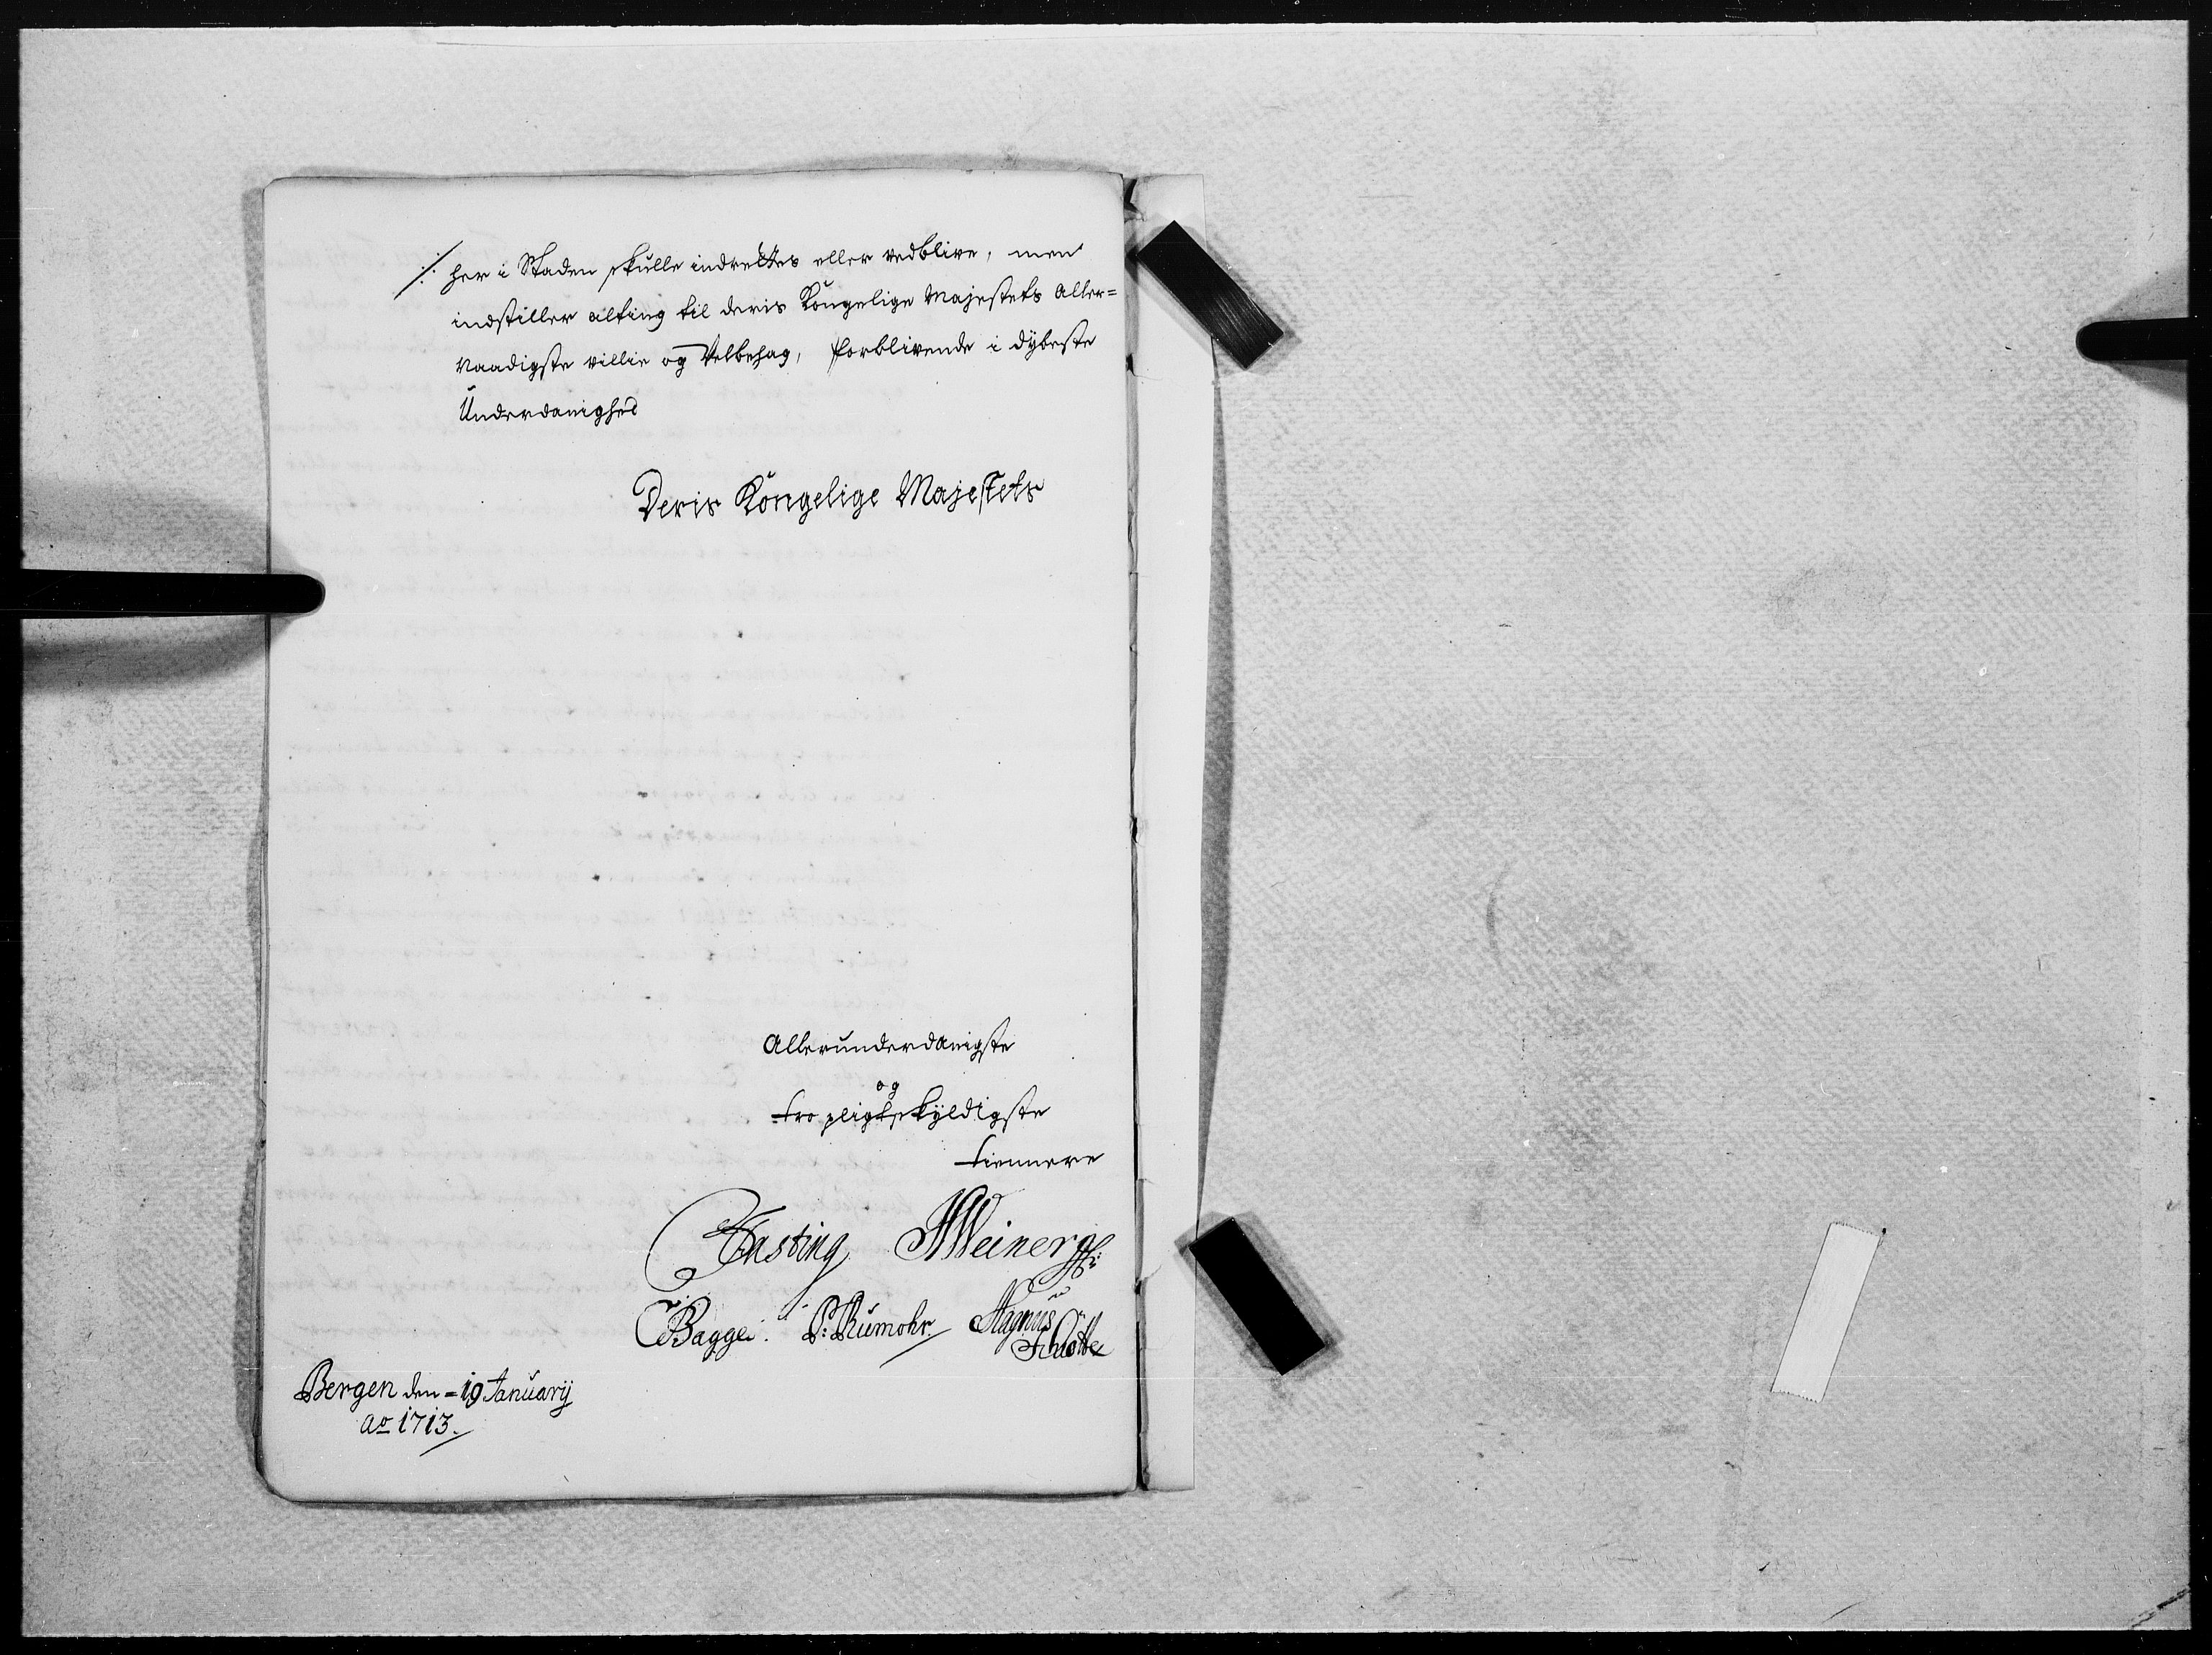 her i Staden skulle indrettes eller vedblive, men
indstiller alting til deris Kongelige Majestets Aller=
naadigste villie og Velbehag, forblivende i dybeste
Underdanighed
Deris Kongelige Majestets
Allerunderdanigste
og
tro pligtskyldigste
tiennere
Fasting Weinerg
Bagge. P: Rumohr. Magnus
Schøtte
Bergen den = 19 Januarij
Ao 1713.